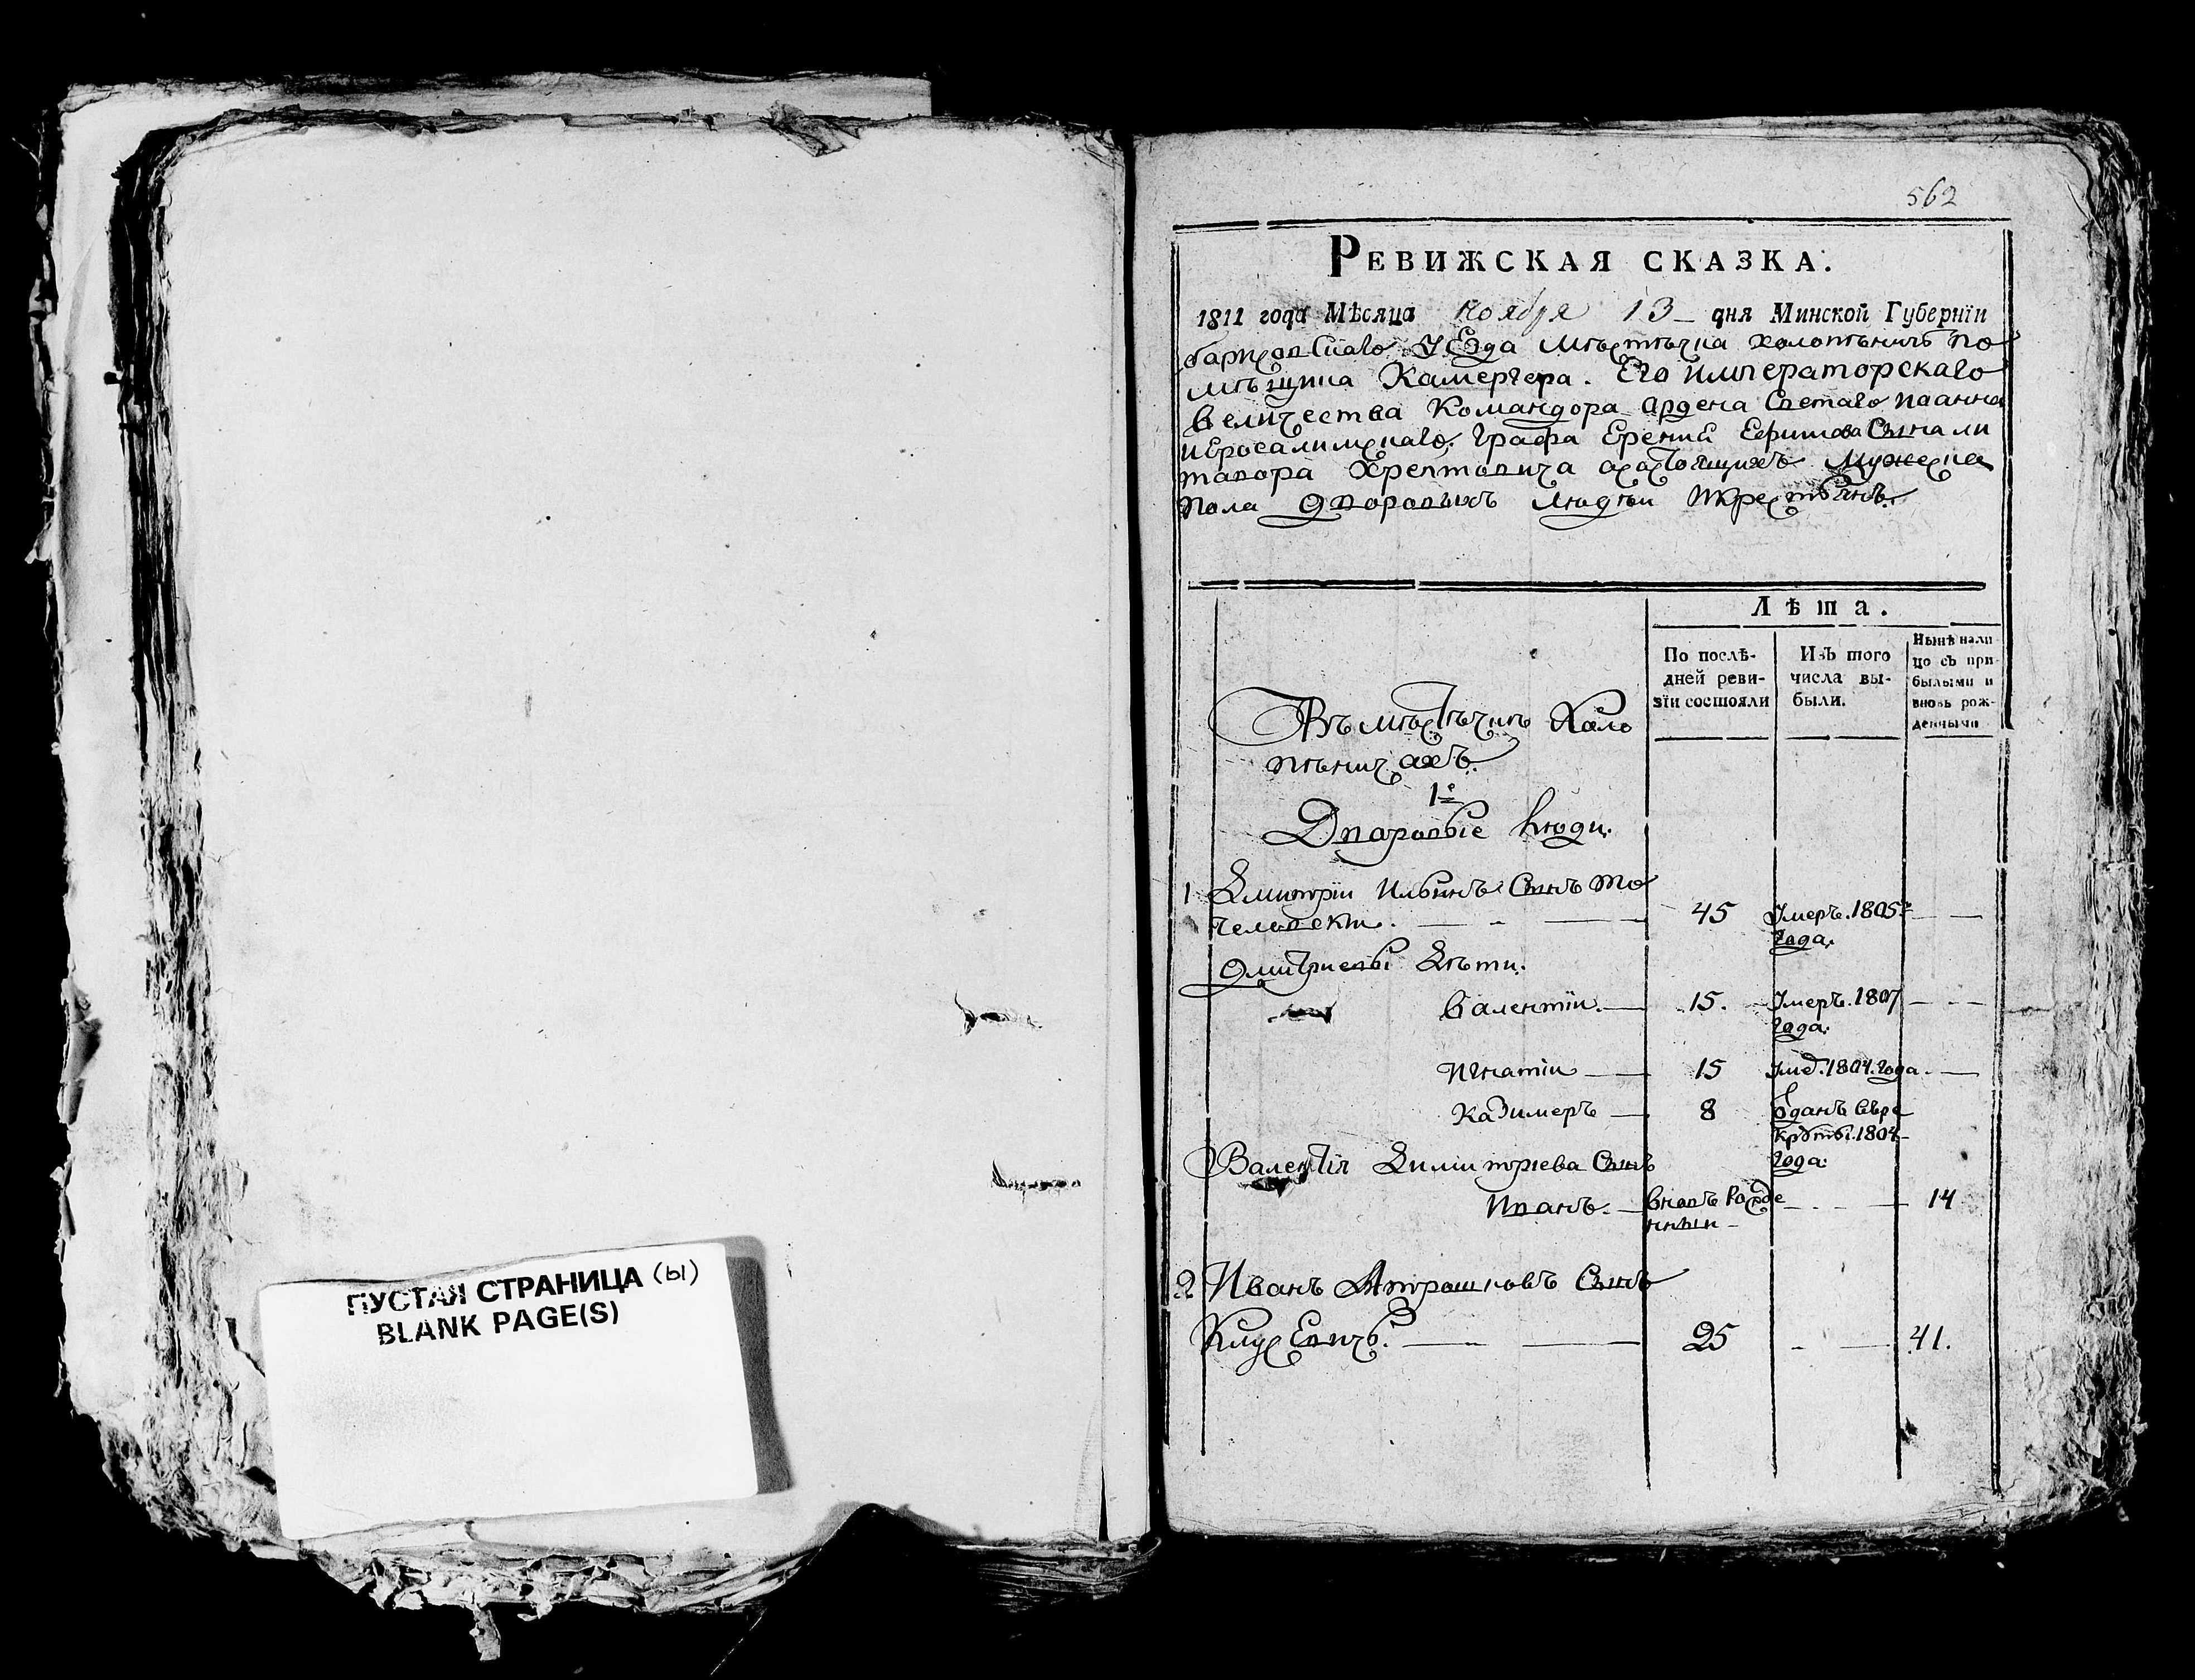 ПУСТАЯ СТРАНИЦА (ы)
BLANK PAGE(S)
562
РЕВИЖСКАЯ СКАЗКА.
1811 года Мѣсяца Ноября 13 дня Минской Губернїи
борисовскаго уезда мѣстѣчка холопѣничъ по
мѣщика Камергера. Его императорскаго
величества Командора ордена Светаго иоанна
иеросалимскаго. графа Ефима сына ли
тавора Хрептовича мужеска
пола дворовыхъ людей икрестьянъ.
Лѣта.
По послѣ-
дней реви-
зїи состояли
Изъ того
числа вы-
были.
Нынѣ нали
цо съ при-
былыми и
вновь рож-
денными
Въ мѣстѣчкѣ Холо
пѣничахъ.
1е
Дворовые люди.
1 Дмитрїи Ильинъ Сынъ
45 Умеръ. 1805го
года.
Дмитриевы Дѣти.
Валентїи. 15. Умеръ. 1807
года.
Игнатїи 15 Умер. 1804. года
Казимеръ 8 Отданъ въре
круты. 1804
года.
Валентїя Димитрїева Сынъ
Иванъ. вновь рожде
нныи 14
2 Иванъ Атрошковъ Сынъ
25 41.